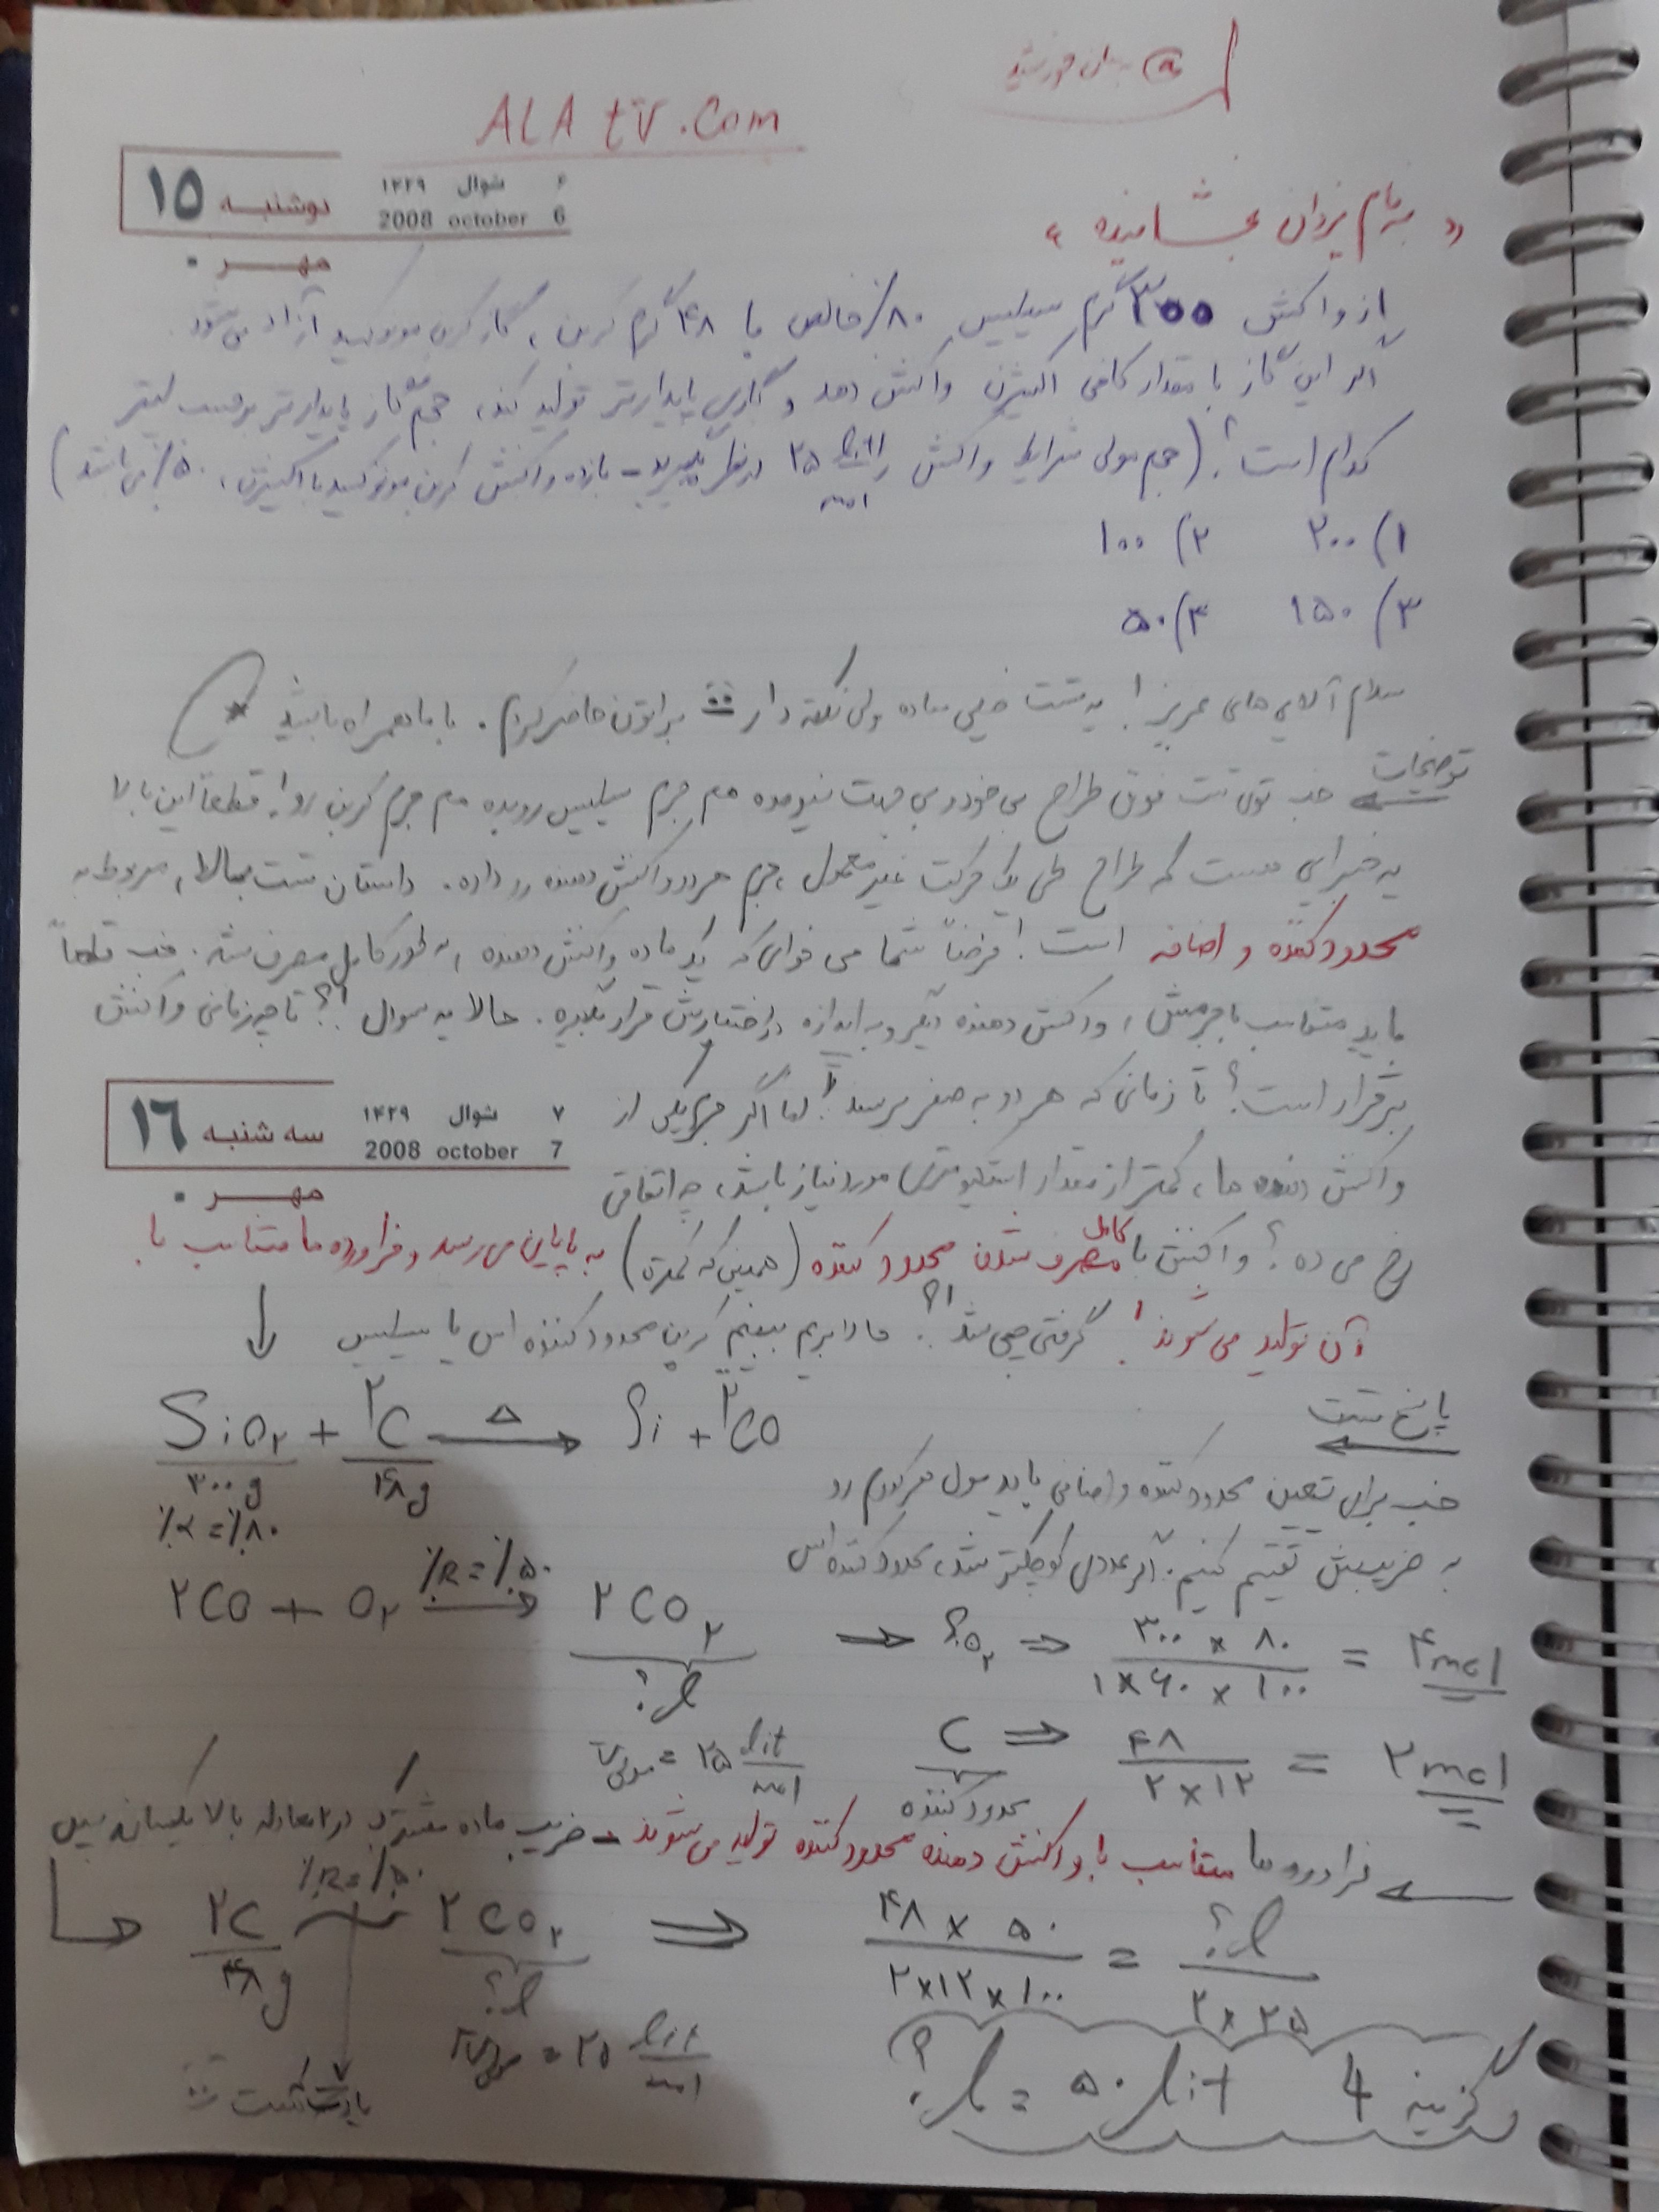 ALA tv.Com
دوشنبه ۱۵
۶ شوال ۱۴۲۹
2008 october 6
مهر
« به نام یزدان بخشاینده »
از واکنش ۳۰۰ گرم سیلیس ۸۰٪ خالص با ۴۸ گرم کربن، گاز کربن مونوکسید آزاد می‌شود.
اگر این گاز با مقدار کافی اکسیژن واکنش دهد و گازی پایدارتر تولید کند، حجم گاز پایدارتر برحسب لیتر
کدام است؟ (حجم مولی شرایط واکنش را ۲۵ lit/mol در نظر بگیرید - بازده واکنش کربن مونوکسید با اکسیژن، ۵۰٪ می‌باشد)
۱) ۲۰۰ ۲) ۱۰۰
۳) ۱۵۰ ۴) ۵۰
سلام آلایی‌های عزیز! یه تست خیلی ساده ولی نکته دار براتون حاضر کردم. با ما همراه باشید
توضیحات
خب توی تست فوق طراح بی خود و بی جهت نیومده هم جرم سیلیس رو بده هم جرم کربن رو! قطعاً این بالا
یه خبرایی هست که طراح طی یک حرکت غیر معمول، جرم هر دو واکنش دهنده رو داده. داستان تست بالا، مربوط به
محدود کننده و اضافه است! فرضاً شما می خوای که یک ماده واکنش دهنده، به طور کامل مصرف شه. خب قطعاً
باید متناسب با جرمش، واکنش دهنده دیگر و به اندازه در اختیارش قرار بگیره. حالا یه سوال!؟ تا چه زمانی واکنش
برقرار است؟ تا زمانی که هر دو به صفر برسند! اما اگر جرم یکی از
سه شنبه ۱۶
۷ شوال ۱۴۲۹
2008 october 7
مهر
واکنش دهنده ها، کمتر از مقدار استکیومتری مورد نیاز باشد، چه اتفاقی
رخ می ده؟ واکنش با کامل مصرف شدن محدود کننده (همینی که کمتره) به پایان می رسد و فراورده ها متناسب با
آن تولید می شوند! گرفتی چی شد؟! حالا بریم ببینیم کربن محدود کننده اس یا سیلیس
پاسخ تست
SiO۲ + ۲C —Δ→ Si + ۲CO
۳۰۰g ۴۸g
خب برای تعیین محدود کننده و اضافی باید مول هر کدوم رو
٪α = ٪۸۰
به ضریبش تقسیم کنیم. اگر عددی کوچکتر شد، محدود کننده اس
۲CO + O۲ —٪R = ٪۵۰→ ۲CO۲
?l
→ SiO۲ ⇒ ۳۰۰ × ۸۰ / ۱×۶۰ × ۱۰۰ = ۴mol
C ⇒ ۴۸ / ۲×۱۲ = ۲mol
محدود کننده
V مولی = ۲۵ lit/mol
فراورده ها متناسب با واکنش دهنده محدود کننده تولید می شوند - ضریب ماده مشترک در ۲ معادله بالا یکسانه پس
۲C ~ ٪R = ٪۵۰ ۲CO۲
۴۸g ?l
⇒ ۴۸ × ۵۰ / ۲×۱۲×۱۰۰ = ?l / ۲×۲۵
V مولی = ۲۵ lit/mol
?l = ۵۰ lit گزینه 4